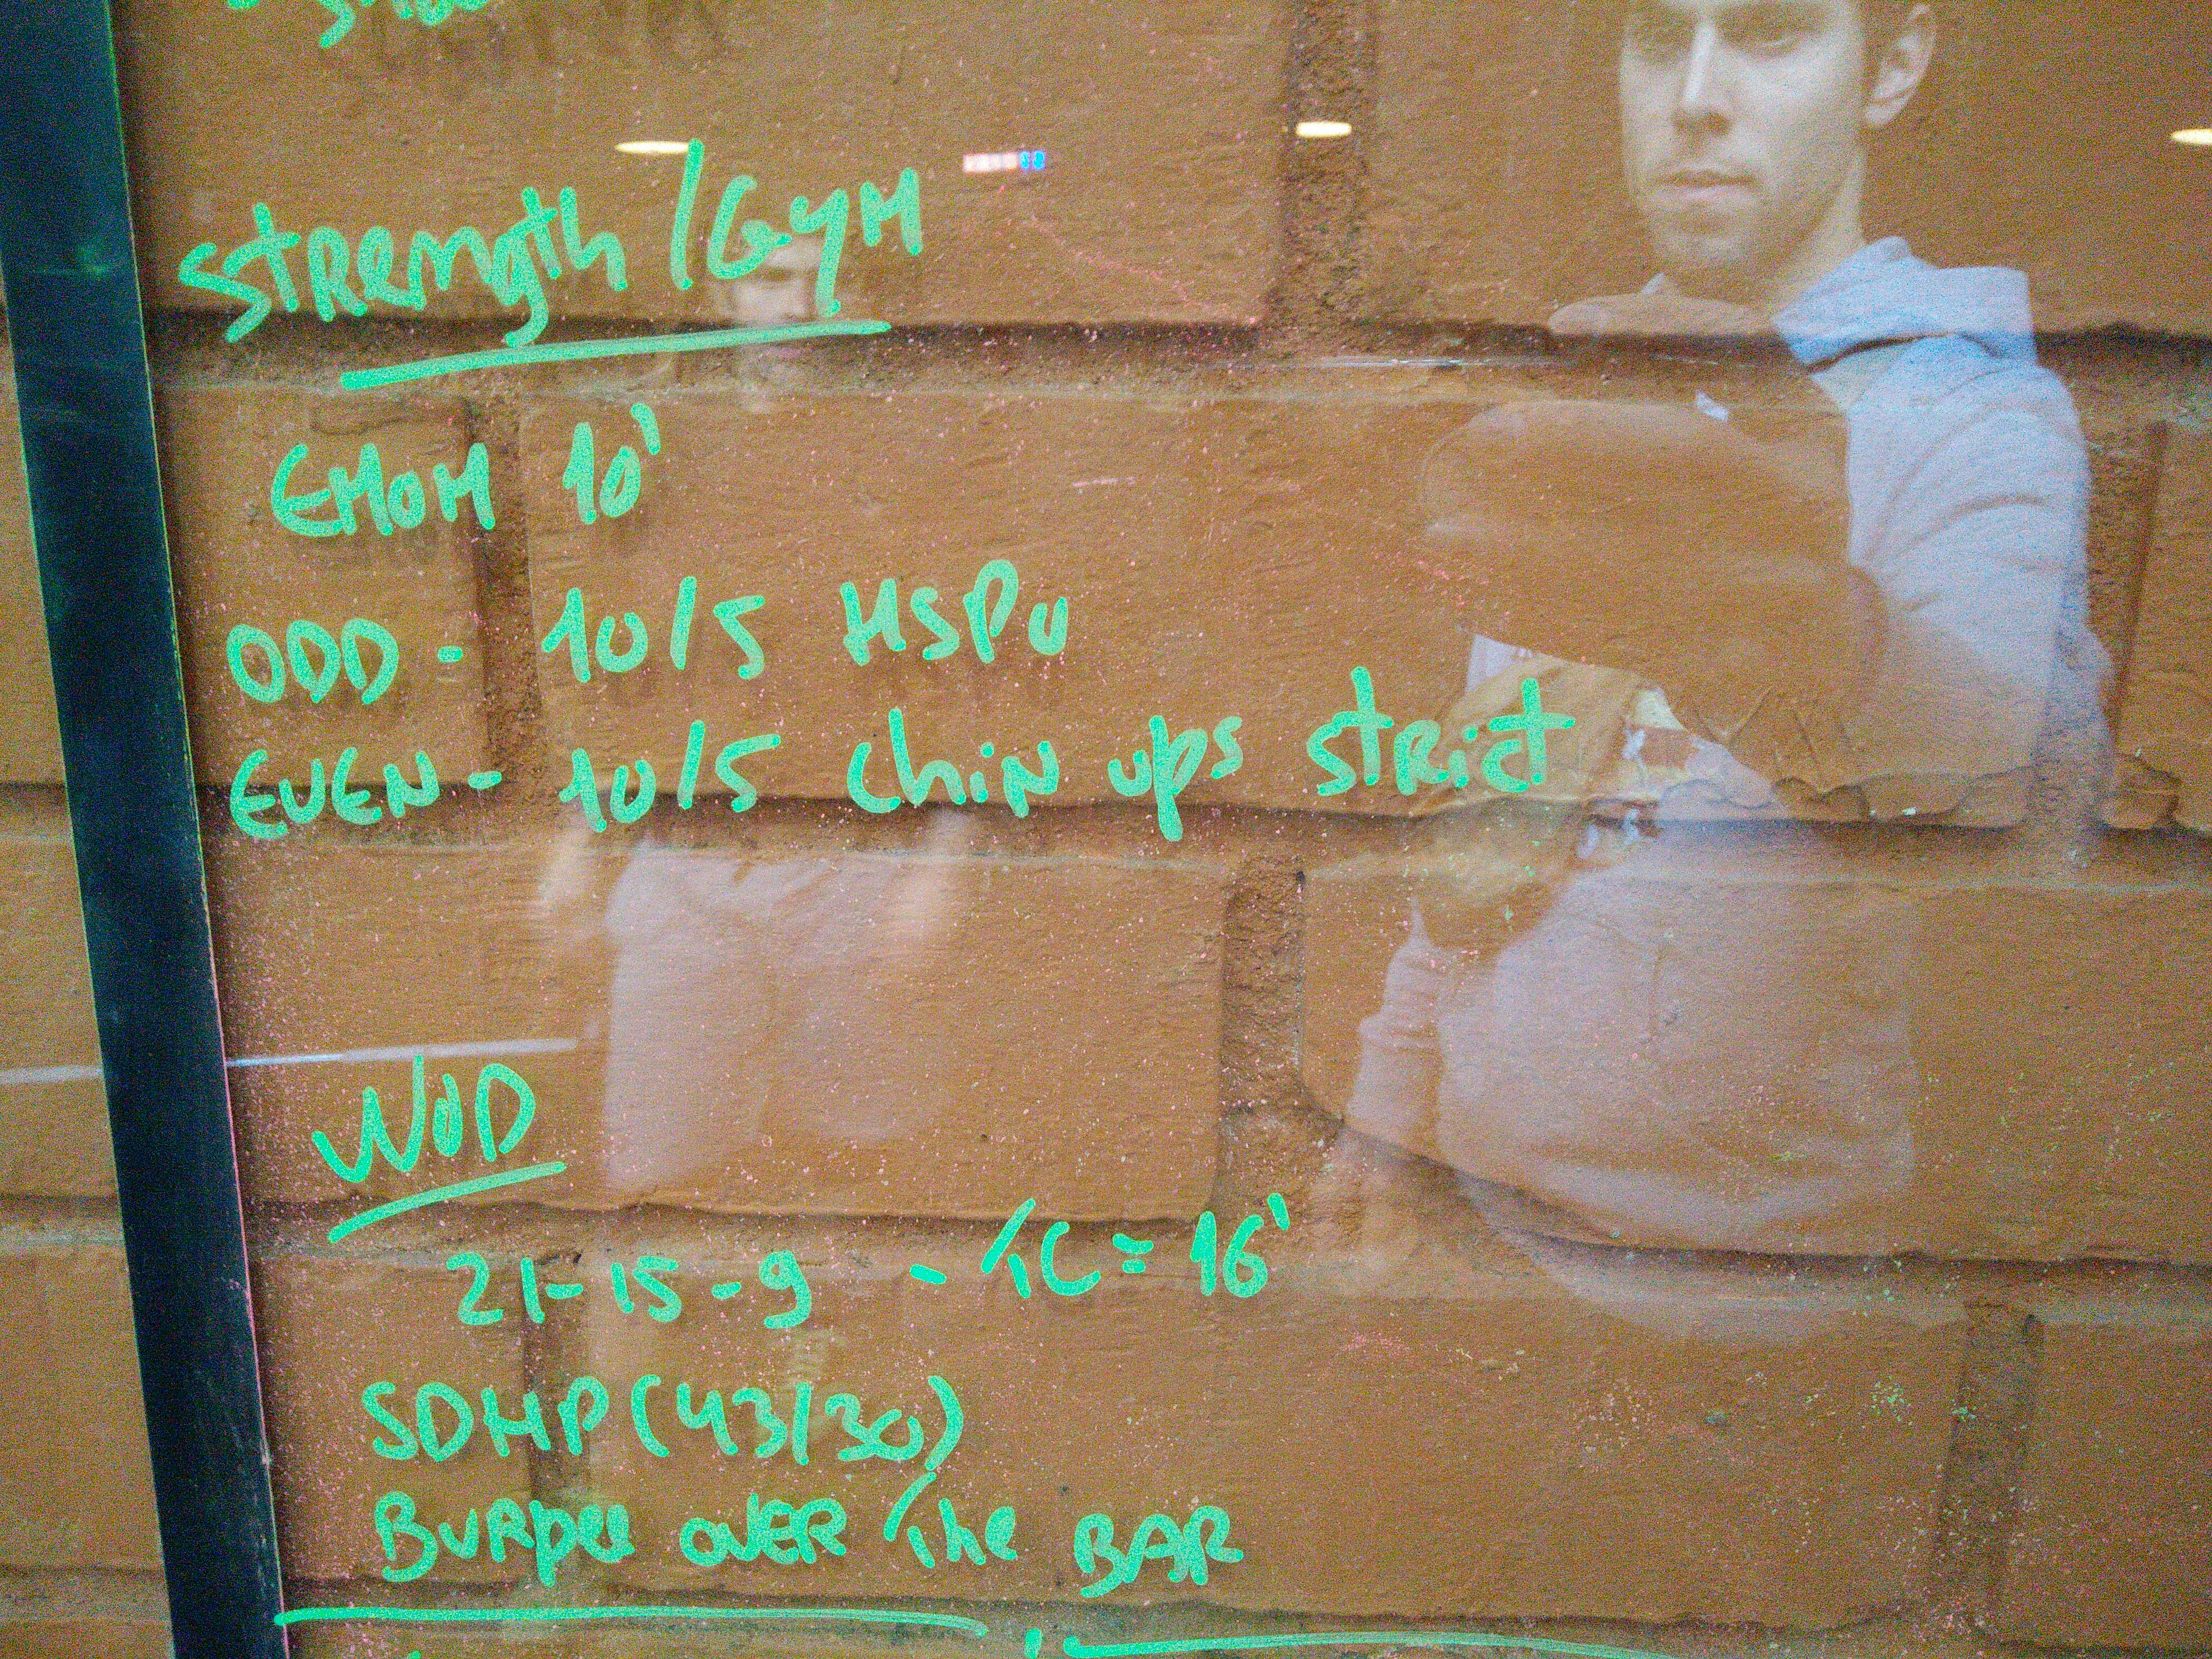 Strength / GYM
EMOM 10'
ODD - 10/5 HSPU
EVEN - 10/5 Chin ups strict
WOD
21-15-9 - TC = 16'
SDHP (43/30)
Burpee OVER The BAR